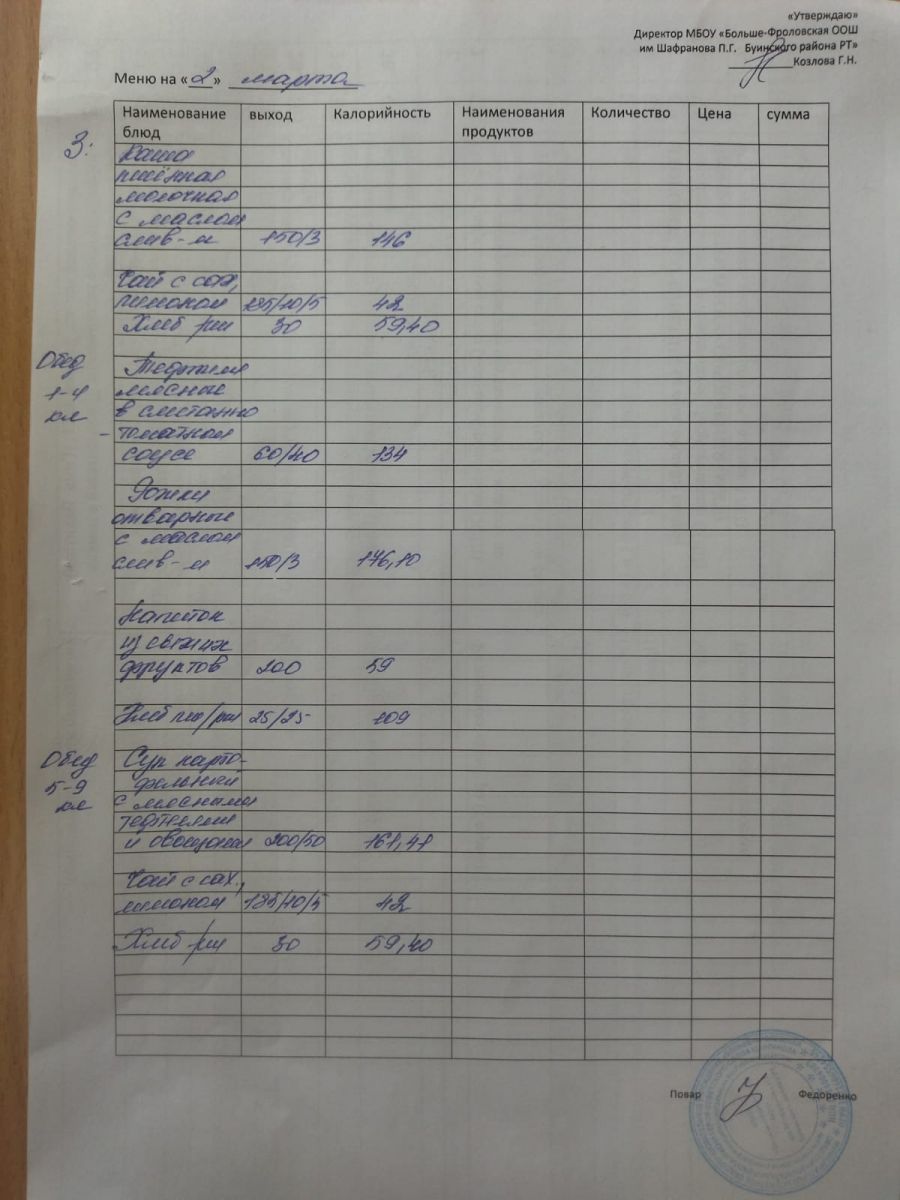 «Утверждаю»
Директор МБОУ «Больше-Фроловская ООШ
им Шафранова П.Г. Буинского района РТ»
Козлова Г.Н.
Меню на «2» марта
Наименование блюд выход Калорийность Наименования продуктов Количество Цена сумма
З: Каша
пшённая
молочная
с маслом
слив-м 150/3 146
Чай с сах,
лимоном 185/10/5 42
Хлеб рж 30 59,40
Обед Тефтели
1-4 мясные
кл в сметанно
- томатном
соусе 60/40 134
Рожки
отварные
с маслом
слив-м 150/3 176,10
Напиток
из свежих
фруктов 200 59
Хлеб пш/рж 25/25 109
Обед Суп карто-
5-9 фельный
кл с мясными
тефтелями
и овощами 200/50 161,41
Чай с сах.,
лимоном 185/10/5 42
Хлеб рж 30 59,40
Повар Федоренко